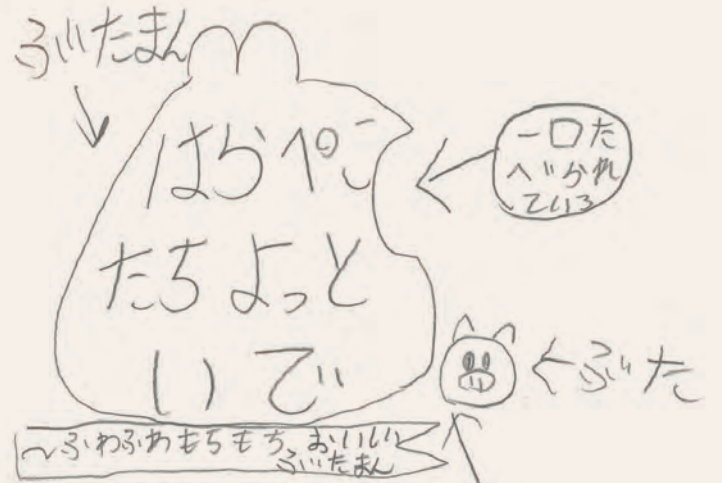 ぶたまん
はらぺこ
たちよっと
いで
一口た
べられ
ている
ぶた
〜ふわふわもちもち おいしい
ぶたまん